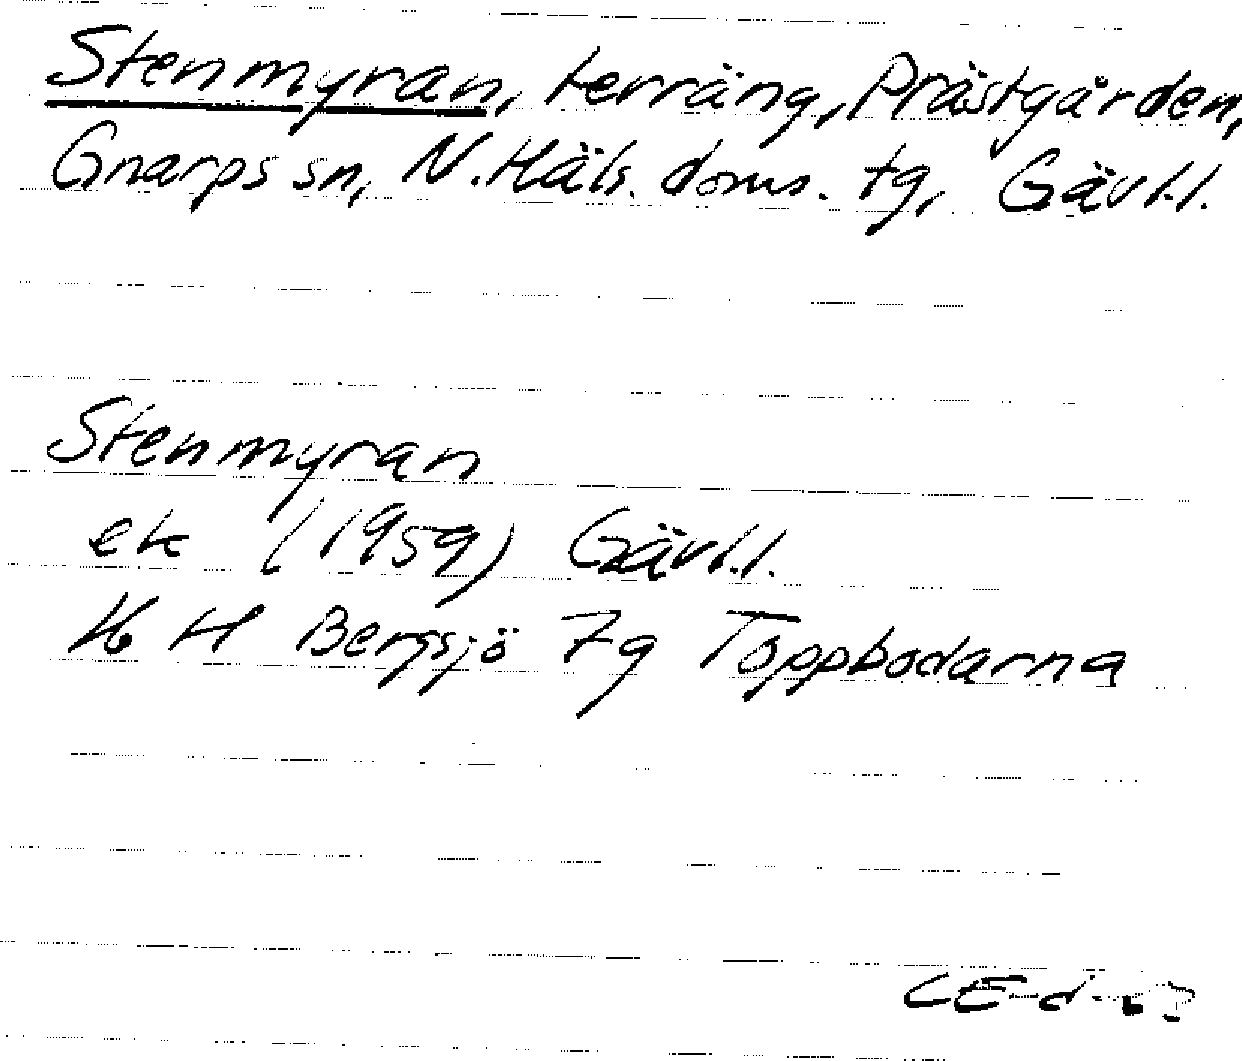 Stenmyran, terräng, Prästgården,
Gnarps sn, N. Häls. doms. tg, Gävl.l.
Stenmyran
ek (1959) Gävl.l.
H Bergsjö 7g Toppbodarna